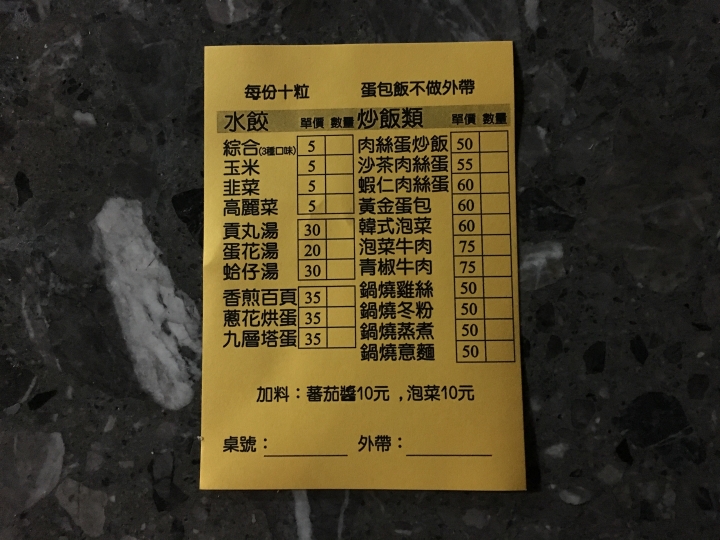 每份十粒 蛋包飯不做外帶
水餃 單價 數量 炒飯類 單價 數量
綜合(3種口味) 5 肉絲蛋炒飯 50
玉米 5 沙茶肉絲蛋 55
韭菜 5 蝦仁肉絲蛋 60
高麗菜 5 黃金蛋包 60
貢丸湯 30 韓式泡菜 60
蛋花湯 20 泡菜牛肉 75
蛤仔湯 30 青椒牛肉 75
香煎百頁 35 鍋燒雞絲 50
蔥花烘蛋 35 鍋燒冬粉 50
九層塔蛋 35 鍋燒蒸煮 50
鍋燒意麵 50
加料：蕃茄醬10元 ,泡菜10元
桌號： 外帶：